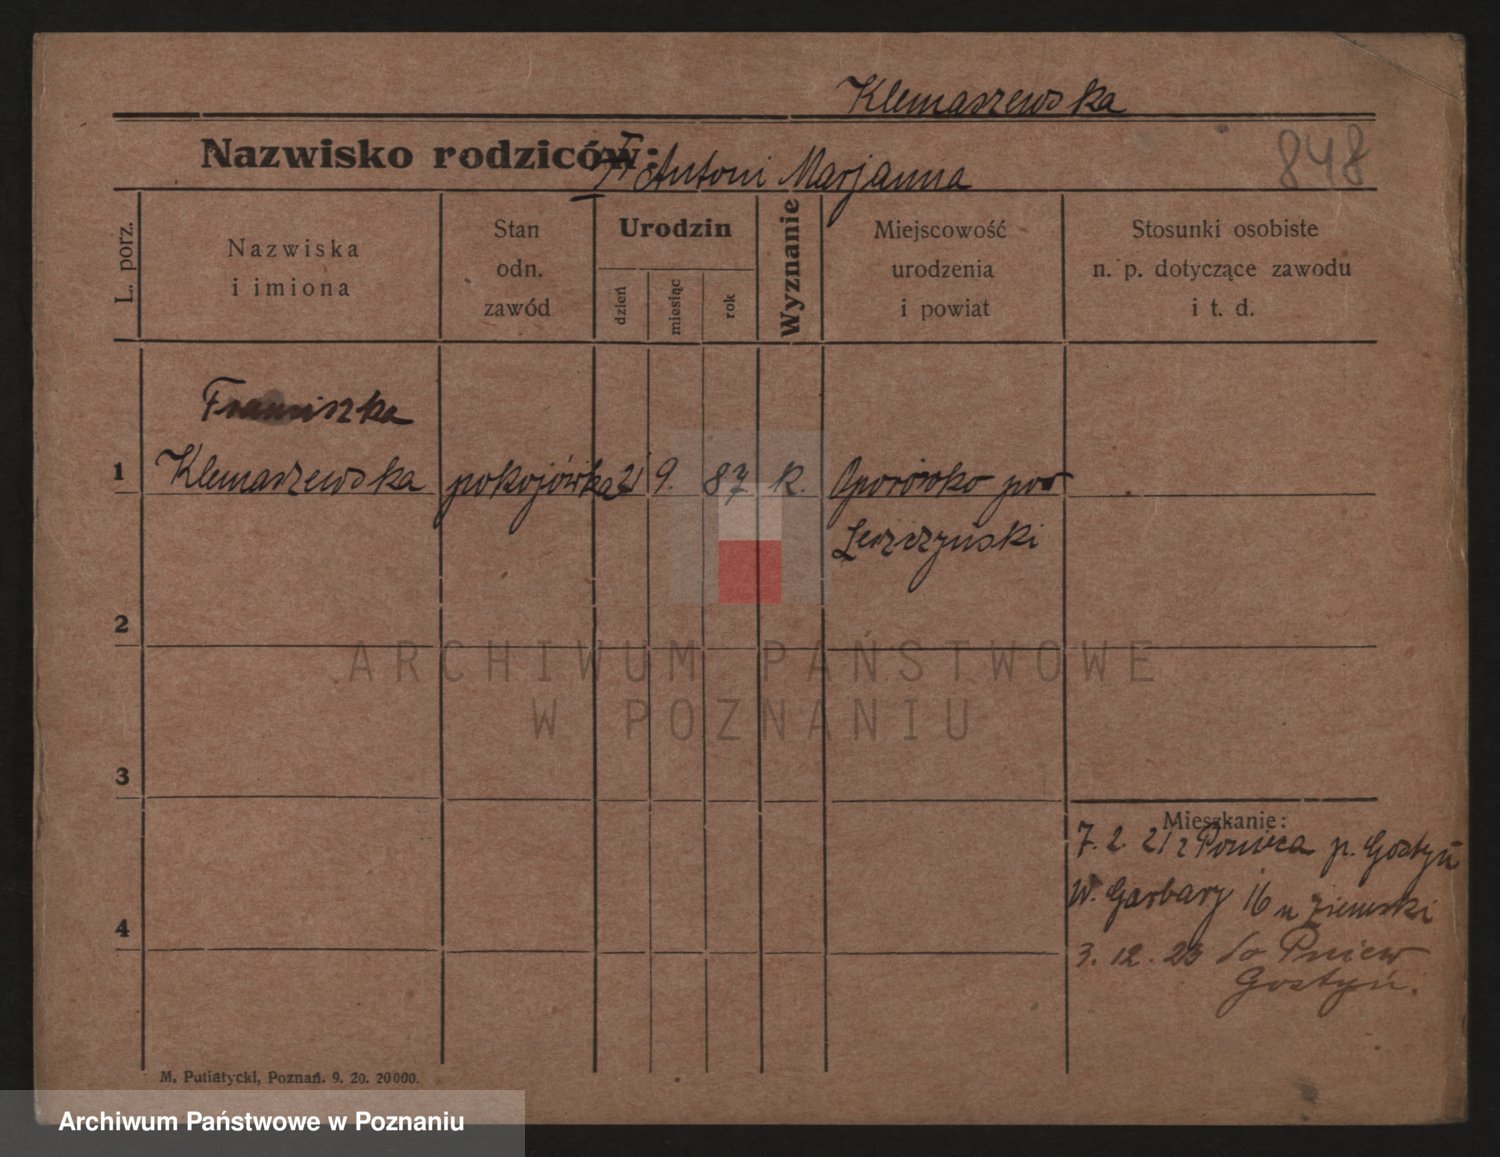 Klemaszewska
Nazwisko rodziców: Antoni Marjanna
848
L. porz.
Nazwiska
i imiona
Stan
odn.
zawód
Urodzin
dzień
miesiąc
rok
Wyznanie
Miejscowość
urodzenia
i powiat
Stosunki osobiste
n. p. dotyczące zawodu
i t. d.
Franciszka
1 Klemaszewska pokojówka 21 9. 87 k. Oporówko pow
Leszczyński
2
ARCHIWUM PAŃSTWOWE
W POZNANIU
3
Mieszkanie:
7. 2. 21 z Ponieca p. Gostyń
W. Garbary 16 u Ziemski
4
3. 12. 23 do Pniew
Gostyń.
M. Putiatycki, Poznań. 9. 20. 20000.
Archiwum Państwowe w Poznaniu